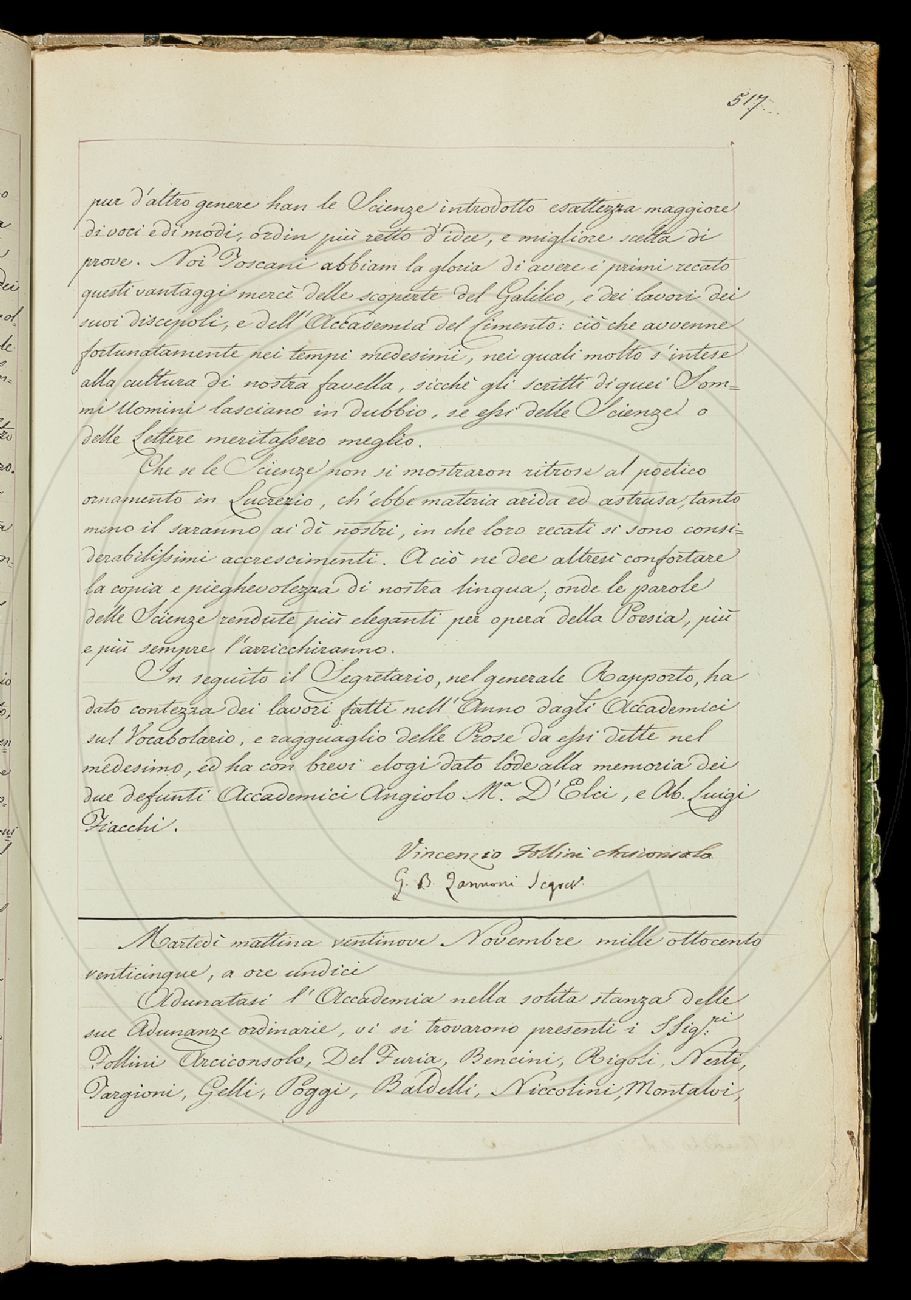 517.
pur d'altro genere han le Scienze introdotto esattezza maggiore
di voci e di modi, ordin più retto d'idee, e migliore scelta di
prove. Noi Toscani abbiam la gloria di avere i primi recato
questi vantaggi mercè delle scoperte del Galileo, e dei lavori dei
suoi discepoli, e dell'Accademia del Cimento: ciò che avvenne
fortunatamente nei tempi medesimi, nei quali molto s'intese
alla cultura di nostra favella, sicchè gli scritti di quei Som=
mi Uomini lasciano in dubbio, se essi delle Scienze o
delle Lettere meritassero meglio.
Che se le Scienze non si mostraron ritrose al poetico
ornamento in Lucrezio, ch'ebbe materia arida ed astrusa, tanto
meno il saranno ai dì nostri, in che loro recati si sono consi=
derabilissimi accrescimenti. A ciò ne dee altresì confortare
la copia e pieghevolezza di nostra lingua, onde le parole
delle Scienze rendute più eleganti per opera della Poesia, più
e più sempre l'arricchiranno.
In seguito il Segretario, nel generale Rapporto, ha
dato contezza dei lavori fatti nell'Anno dagli Accademici
sul Vocabolario, e ragguaglio delle Prose da essi dette nel
medesimo, ed ha con brevi elogi dato lode alla memoria dei
due defunti Accademici Angiolo M.a D'Elci, e Ab. Luigi
Fiacchi.
Vincenzio Follini Arciconsolo
G. B. Zannoni Segret.
Martedì mattina ventinove Novembre mille ottocento
venticinque, a ore undici
Adunatasi l'Accademia nella solita stanza delle
sue Adunanze ordinarie, vi si trovarono presenti i SSig.ri
Follini Arciconsolo, Del Furia, Bencini, Rigoli, Nesti,
Targioni, Gelli, Poggi, Baldelli, Niccolini, Montalvi,